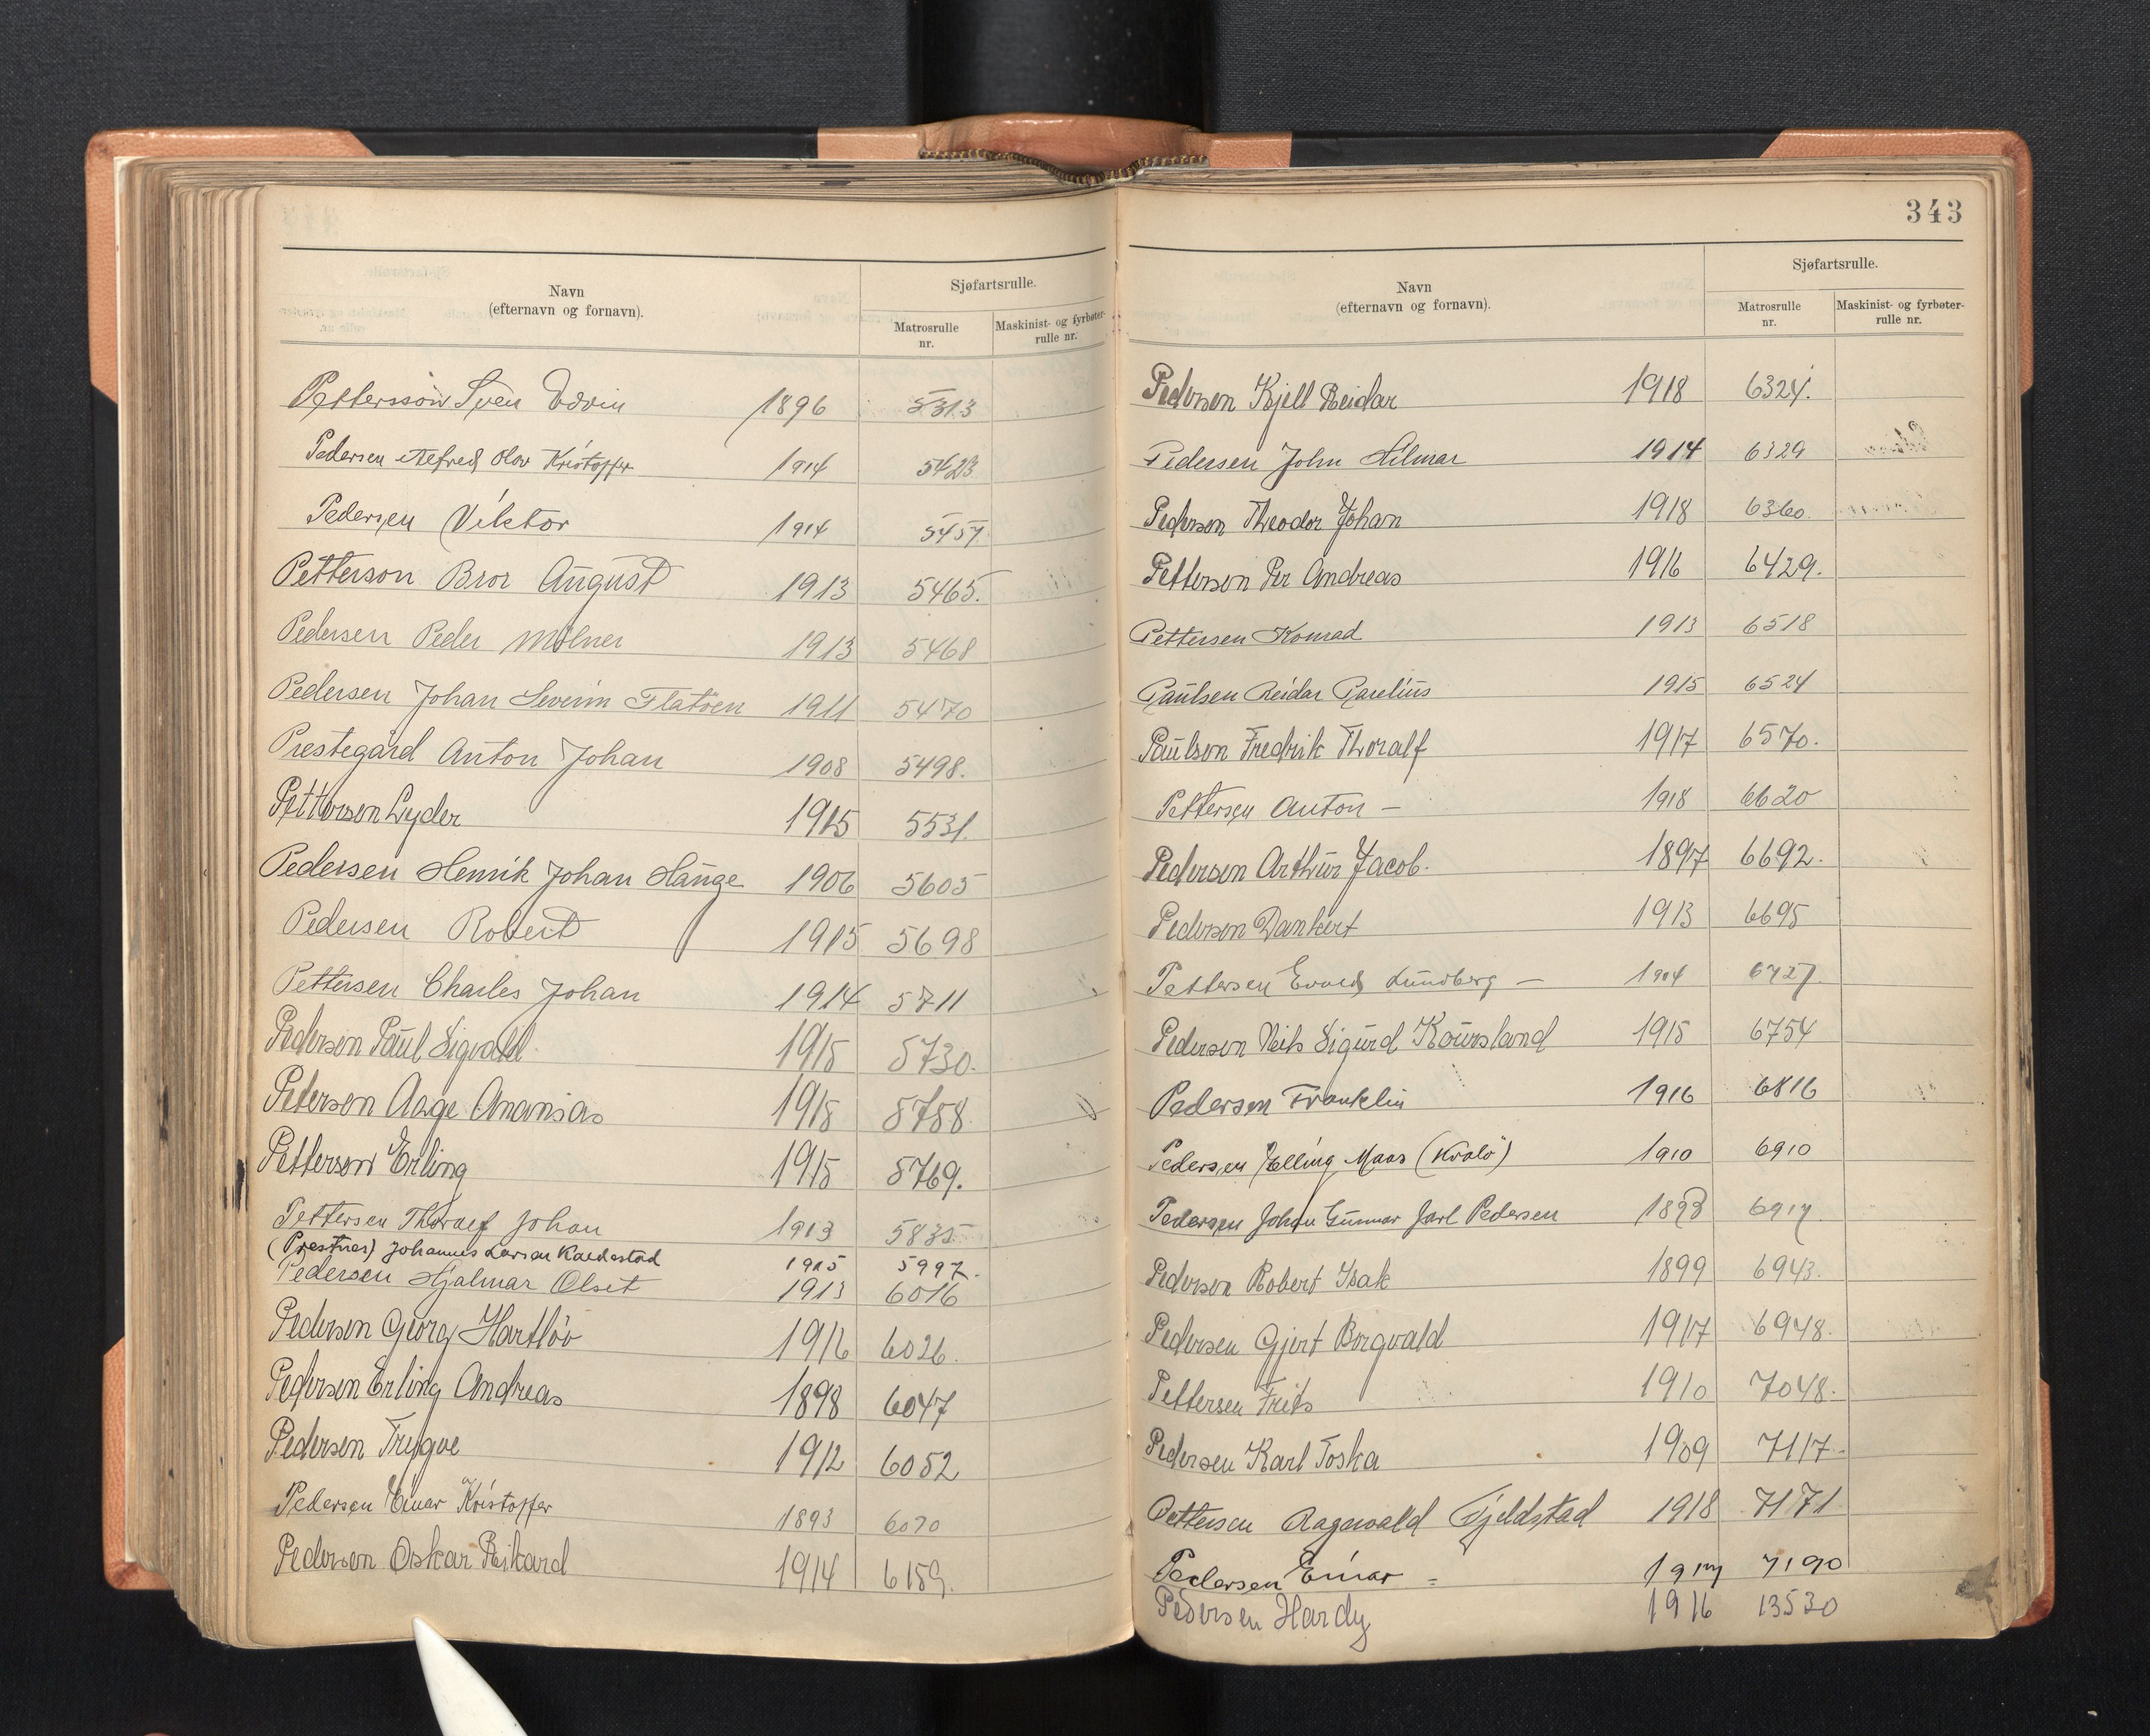 Navn
(efternavn og fornavn).
Sjøfartsrulle.
Matrosrulle
nr.
Maskinist- og fyrbøter-
rulle nr.
Pettersson Sven Edvin 1896 5313
Pedersen Alfred Olov Kristoffer 1914 5423
Pedersen Viktor 1914 5457
Petterson Bror August 1913 5465.
Pedersen Peder Mölner 1913 5468
Pedersen Johan Severin Flatöen 1911 5470
Prestegård Anton Johan 1908 5498.
Pettersen Lyder 1915 5531.
Pedersen Henrik Johan Hauge 1906 5605
Pedersen Robert 1915 5698
Pettersen Charles Johan 1914 5711
Pedersen Paul Sigvald 1915 5730.
Petersen Aage Ananias 1915 5758.
Pettersen Erling 1915 5769.
Pettersen Thoralf Johan 1913 5835
(Prestnes) Johannes Larsen Kaldestad 1915 5997.
Pedersen Hjalmar Olset 1913 6016
Pedersen Georg Hartløv 1916 6026.
Pedersen Erling Andreas 1898 6047
Pedersen Trygve 1912 6052
Pedersen Einar Kristoffer 1893 6070
Pedersen Oskar Rikard 1914 6159.
343
Navn
(efternavn og fornavn).
Sjøfartsrulle.
Matrosrulle
nr.
Maskinist- og fyrbøter-
rulle nr.
Pedersen Kjell Reidar 1918 6324.
Pedersen John Hilmar 1914 6329
Pedersen Theodor Johan 1918 6360.
Pettersen Per Andreas 1916 6429.
Pettersen Konrad 1913 6518
Paulsen Reidar Parelius 1915 6524
Paulsen Fredrik Thoralf 1917 6570.
Pettersen Anton – 1918 6620
Pedersen Arthur Jacob. 1897 6692.
Pedersen Dankert 1913 6695
Pettersen Evald Lundberg – 1904 6727.
Pedersen Neils Sigurd Koursland 1915 6754
Pedersen Franklin 1916 6816
Pedersen Elling Maas (Kvalö) 1910 6910
Pedersen Johan Gunnar Jarl Pedersen 1898 6917
Pedersen Robert Isak 1899 6943.
Pedersen Gjert Borgvald 1917 6948.
Pettersen Frits 1910 7048.
Pedersen Karl Toska 1909 7117.
Pettersen Ragnvald Fjeldstad 1918 7171
Pedersen Einar = 1917 7190
Pedersen Hardy 1916 13530